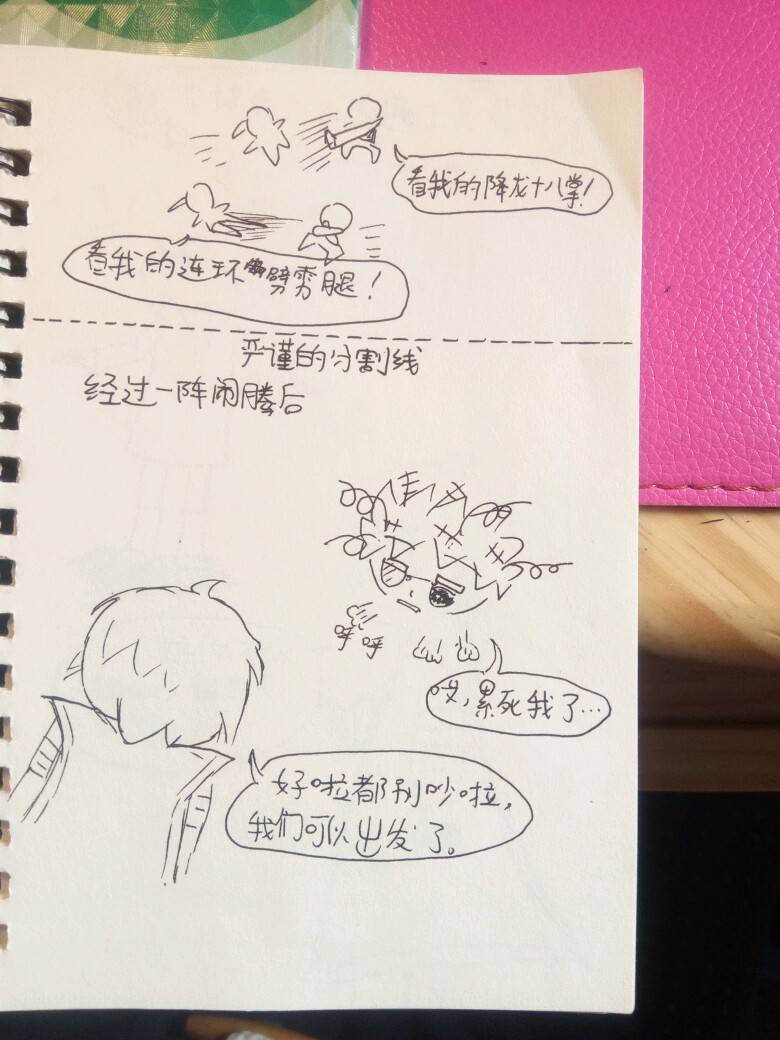 看我的降龙十八掌!
看我的连环劈雳腿!
严谨的分割线
经过一阵闹腾后
呼呼
哎,累死我了…
好啦都别吵啦,
我们可以出发了。